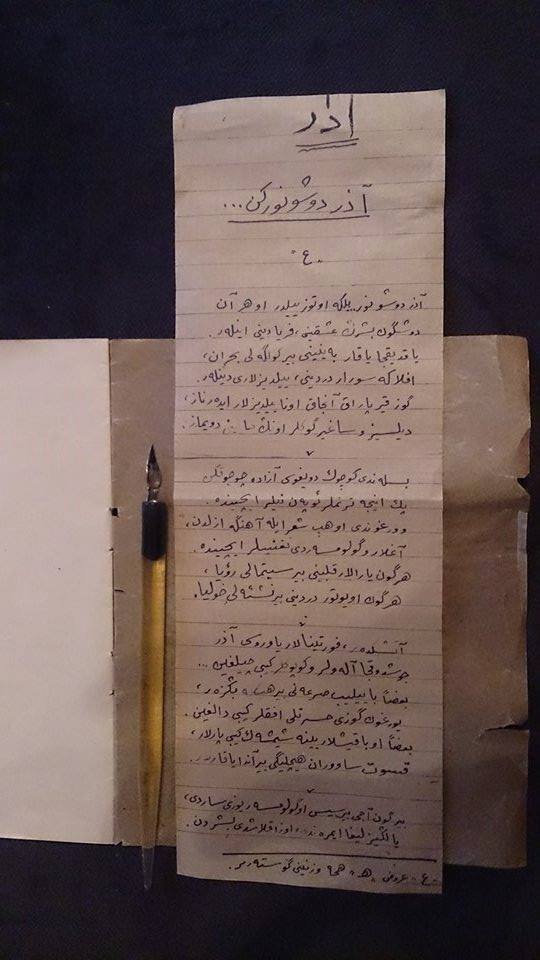 آذر
آذر دوشونورکن...
"ع"
آذر دوشونور بلکه اوتوز ییلدر او هر آن
دوشگون بشرڭ عشقینی، فریادینی ایڭلر.
یاقدیقجا یاقار به‌ینینی بیر کولگه‌لی بحران،
افلاکه سورار دردینی، ییلدیزلاری دیڭلر.
گوز قیرپاراق آنجاق اونا ییلدیزلار ایدر ناز،
دیلسیز و ساغیر گوکلر اونڭ دویماز.
بسله‌ندی کوچوک دویغوسی آزاده چوجوقکن
پك اینجه ترنملر ئوپه‌ن ایچینده.
وورغوندی او هپ شعر ایله آهنگه ازلدن،
آغلار و گولومسه‌ردی ایچینده.
هرگون یارالار قلبینی بیر سیتمالی رؤیا،
هرگون اویوتور دردینی بیر نشئه‌لی خولیا.
آتشلده‌ر، فورتینالار یاوروسی آذر
جوشدوقجا آلولر و کوپوکلر کبی چیلغین...
بعضاً بکزه‌ر،
یورغون گوزی حسرتلی افقلر کبی دالغین.
بعضاً او باقیشلار یینه شیمشك کبی پارلار،
ساووران هیچلیگی بیر آندا یاقار
بیر گون آجی بیر سیس او گولومسه‌ر یوزی ساردی،
یالڭیزلیغا اوزاقلاشدی بشردن.
ع - عروض، "هـ" هجه وزنینی گوسته‌رر.